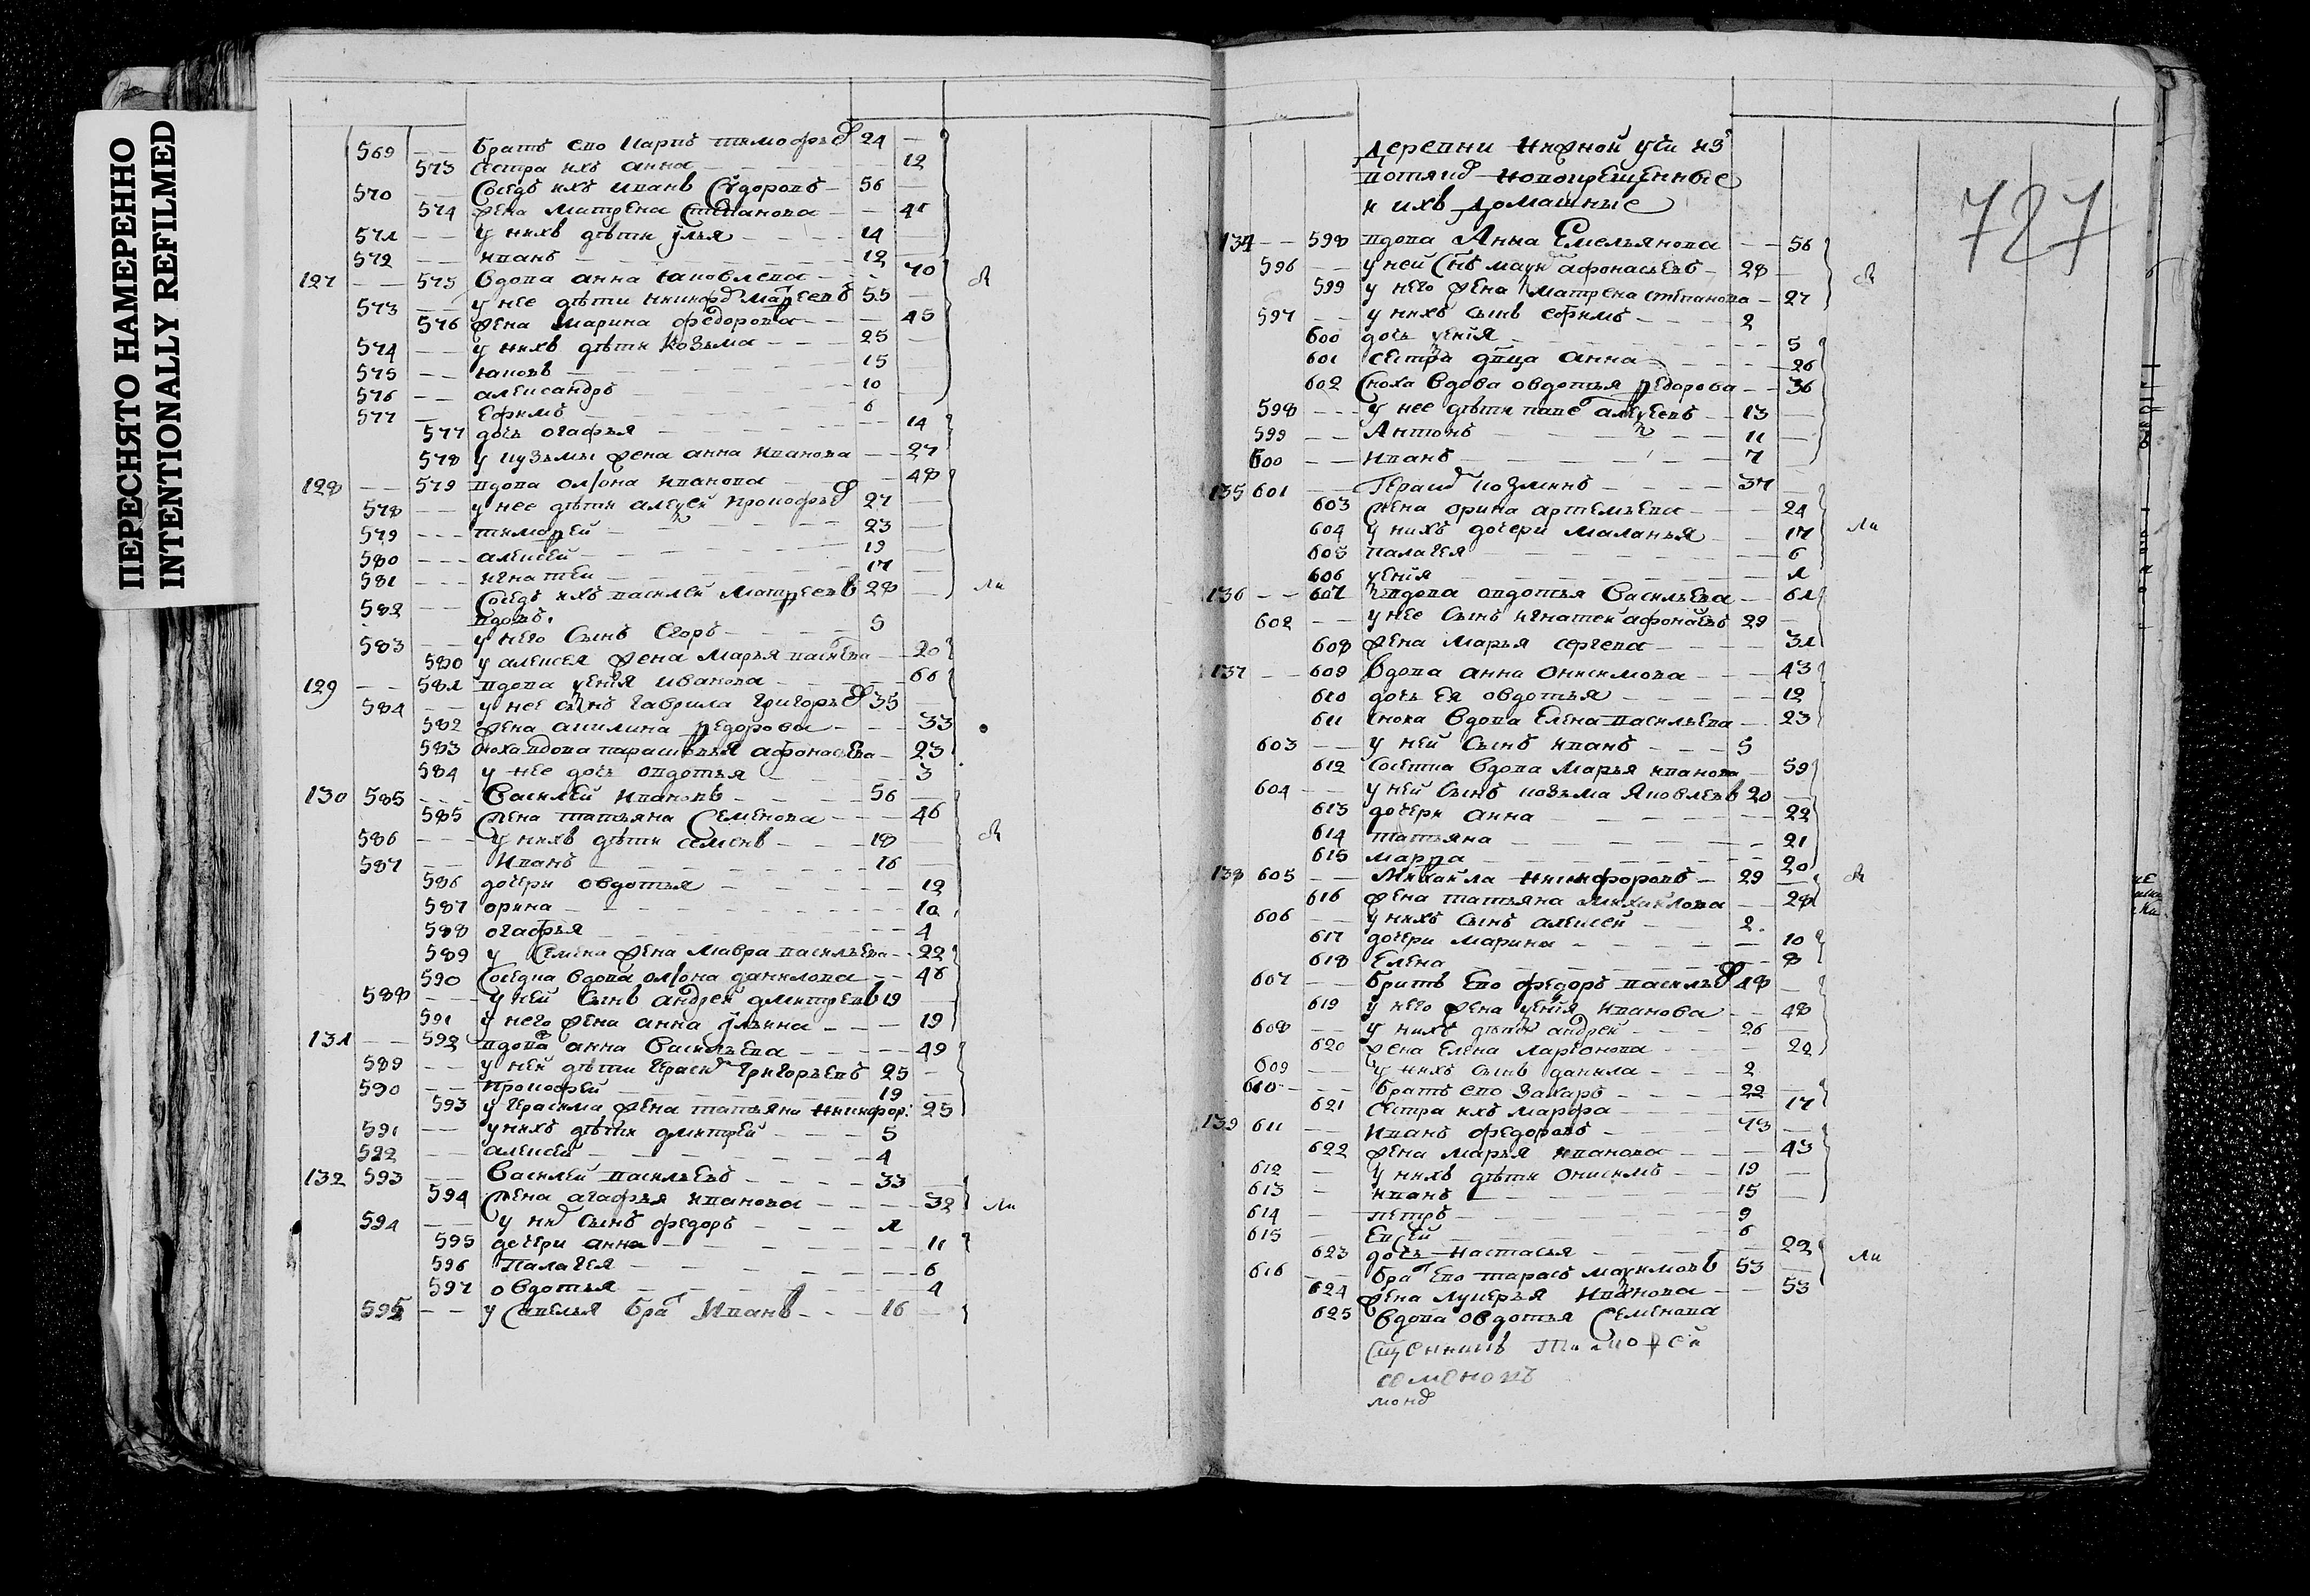 ПЕРЕСНЯТО НАМЕРЕННО
INTENTIONALLY REFILMED
569 — — братъ ево Карпъ тимофѣе 24 —
573 сестра ихъ анна — — 12
570 — — Соседъ ихъ иванъ Сидоровъ — 56 —
574 жена матрена степанова — — 41
571 — — у нихъ дѣти илья — — 14 —
572 — — иванъ — — 12 —
127 — — 575 вдова анна яковлева — — 70
573 — — у нее дѣти никифо матвеевъ 55 —
576 жена марина федорова — — 45
574 — — у нихъ дѣти козьма — — 25 —
575 — — яковъ — 15
576 — — александръ — 10
577 — — Ефимъ — 6
577 дочь огафья — — 14
578 у кузьмы жена анна иванова — — 27
128 — — 579 вдова олiона иванова — — 48
578 — — у нее дѣти алексѣй прокофье 27 —
579 — — тимофей — 23 —
580 — — алексей — 19 —
581 — — игнатей — 17 —
582 — — Соседъ ихъ василей матвеевъ 28 —
вдовъ.
583 — — у него сынъ Егоръ — 5
580 у алексея жена марья василева — 20
129 — — 581 вдова ксенiя иванова — 66
584 — — у нее сынъ гаврила григорье 35 —
582 жена акилина федорова — 33
583 сноха вдова парасковья афонасьева — 23
584 у нее дочь овдотья — 3
130 585 — — Василей ивановъ — 56 —
585 жена татьяна Семенова — — 46
586 — — у нихъ дѣти семенъ — 18 —
587 — — Иванъ — 16 —
586 дочери овдотья — 12
587 орина — 10
588 огафья — 4
589 у Семена жена мавра васильева — 22
590 Соседка вдова олiона данилова — — 46
588 — — у ней сынъ андрей дмитревъ 19 —
591 у него жена анна ильина — — 19
131 — — 592 вдова анна васильева — — 49
589 — — у ней дѣти герасим григорьевъ 25 —
590 — — прокофей — 19 —
593 у герасима жена татьяна никифор: 25
591 — — у нихъ дѣти дмитрей — 5
592 — — алексей — 4
132 593 — — Василей васильевъ — 33 —
594 жена агафья иванова — — 32
594 — — у ни сынъ федоръ — 1
595 дочери анна — 11
596 палагея — 6
597 овдотья — 4
595 — — у савелья бра Иванъ — 16 —
727
деревни нижной уси из
новокрещенные
и ихъ домашные
134 — — 598 вдова Анна Емельянова — — 56
596 — — у ней снъ макси афонасьевъ — 28 —
599 у него жена матрена степанова — 27
597 — — у нихъ сынъ ефимъ — 2
600 дочь ксенiя — 5
601 сестра анна — 26
602 Сноха вдова овдотья федорова — — 36
598 — — у нее дѣти паве алексеевъ — 13 —
599 — — Антонъ — 11 —
600 — — Иванъ — 7 —
135 601 — — Гераси козминъ — 37 —
603 жена орина артемьева — 24
604 у нихъ дочери маланья — 17
605 палагея — 6
606 ксенiя — 1
136 — — 607 вдова овдотья васильева — 61
602 — — у нее сынъ игнатей афонасьевъ 29 —
608 жена марья сергева — 31
137 — — 609 вдова анна онисимова — 43
610 дочь ея овдотья — 12
611 сноха вдова елена васильева — 23
603 — — у ней сынъ иванъ — 5
612 Соседка вдова марья иванова — 59
604 — — у ней сынъ козьма яковлевъ 20 —
613 дочери анна — 22
614 татьяна — 21
615 марфа — 20
138 605 — — Михайла никифоровъ — 29 —
616 жена татьяна михайлова — 28
606 — — у нихъ сынъ алексей — 2.
617 дочери марина — 10
618 Елена — 8
607 — — братъ ево федоръ василье 48 —
619 у него жена ксенiя иванова — 48
608 — — у нихъ дѣти андрей — 26 —
620 жена елена ларионова — 22
609 — — у нихъ сынъ данила — 2
610 — — братъ ево захаръ — 22 —
621 сестра ихъ марфа — 17
139 611 — — иванъ федоровъ — 43 —
622 жена марья иванова — 43
612 — у нихъ дѣти онисимъ — 19 —
613 — иванъ — 15 —
614 — петръ — 9
615 — Евсей — 6
623 дочь настасья — 22
616 — — бра ево тарасъ максимовъ 53 —
624 жена лукерья иванова — 53
625 вдова овдотья Семенова
Сщенникъ Тимофей
семеновъ